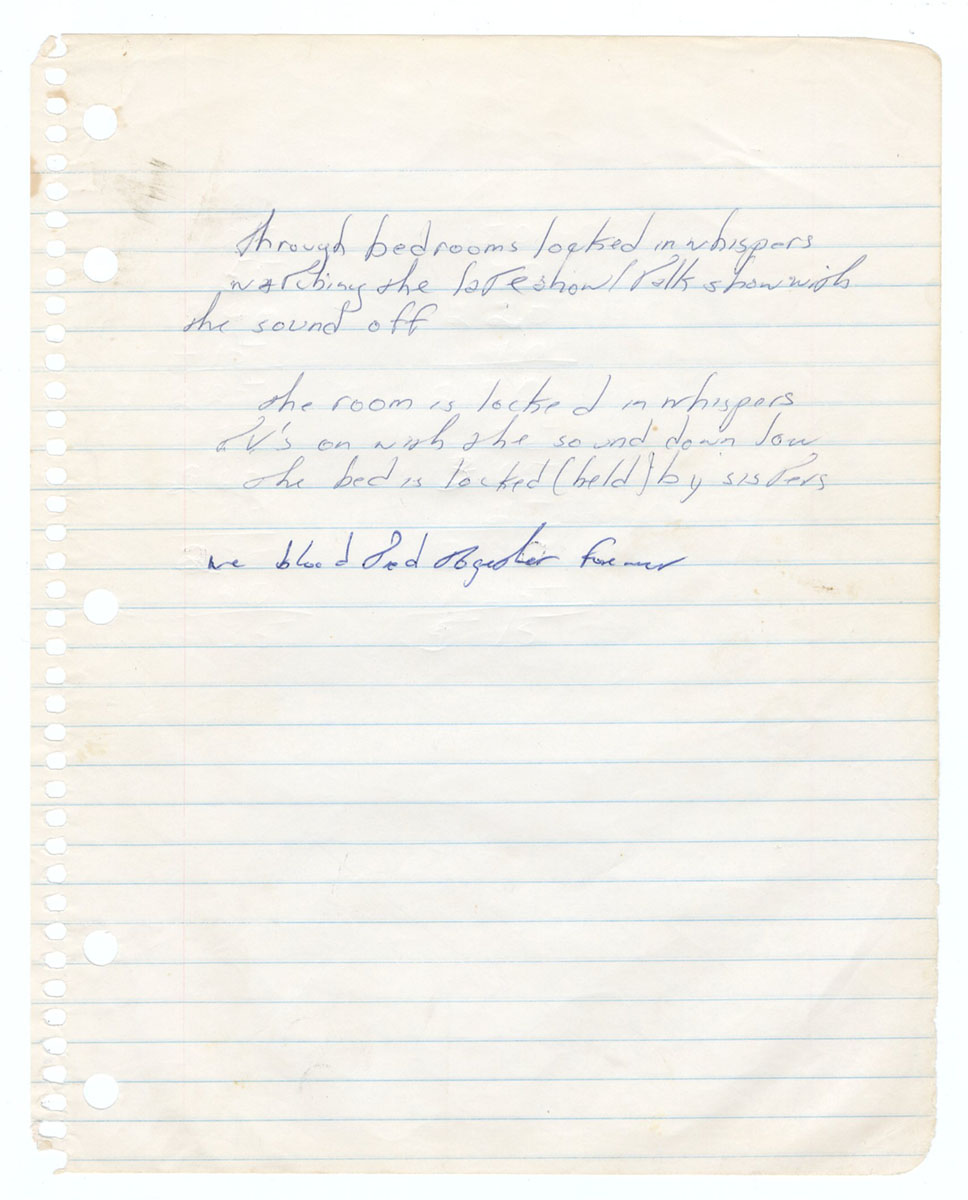 through bedrooms locked in whispers
watching the late show/talk show with
the sound off
the room is locked in whispers
T.V.'s on with the sound down low
the bed is locked (held) by sisters
we blood tied together forever